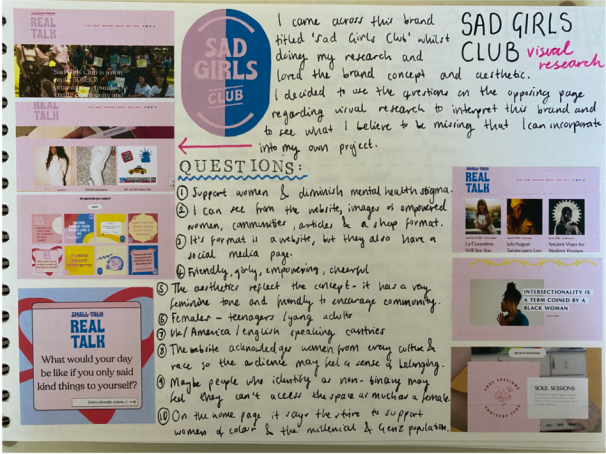 REAL
TALK
Sad Girls Club is a non
REAL
TALK
SAD
GIRLS
CLUB
I came across this brand
titled 'Sad Girls Club' whilst
doing my research and
loved the brand concept and aesthetic.
I decided to use the questions on the opposing page
regarding visual research to interpret this brand and
to see what I believe to be missing that I can incorporate
into my own project.
SAD GIRLS
CLUB
visual
research
QUESTIONS:
① Support women & diminish mental health stigma.
② I can see from the website, images of empowered
women, communities, articles & a shop format.
③ It's format is a website, but they also have a
social media page.
④ Friendly, girly, empowering, cheerful
⑤ The aesthetics reflect the concept - it has a very
feminine tone and friendly to encourage community.
⑥ Females - teenagers / young adults
⑦ UK/America/english speaking
⑧ The website acknowledges women from every culture &
race so the audience may feel a sense of belonging.
⑨ Maybe people who identify as non-binary may
feel they can't access the space as much as a female.
⑩ On the home page it says they strive to support
women of colour & the millenial & Gen Z population.
SMALL TALK
REAL
TALK
What would your day
be like if you only said
kind things to yourself?
REAL
TALK
La Curandera
Will See You
Ancient Ways for
Modern Women
INTERSECTIONALITY IS
A TERM COINED BY A
BLACK WOMAN
SOUL SESSIONS